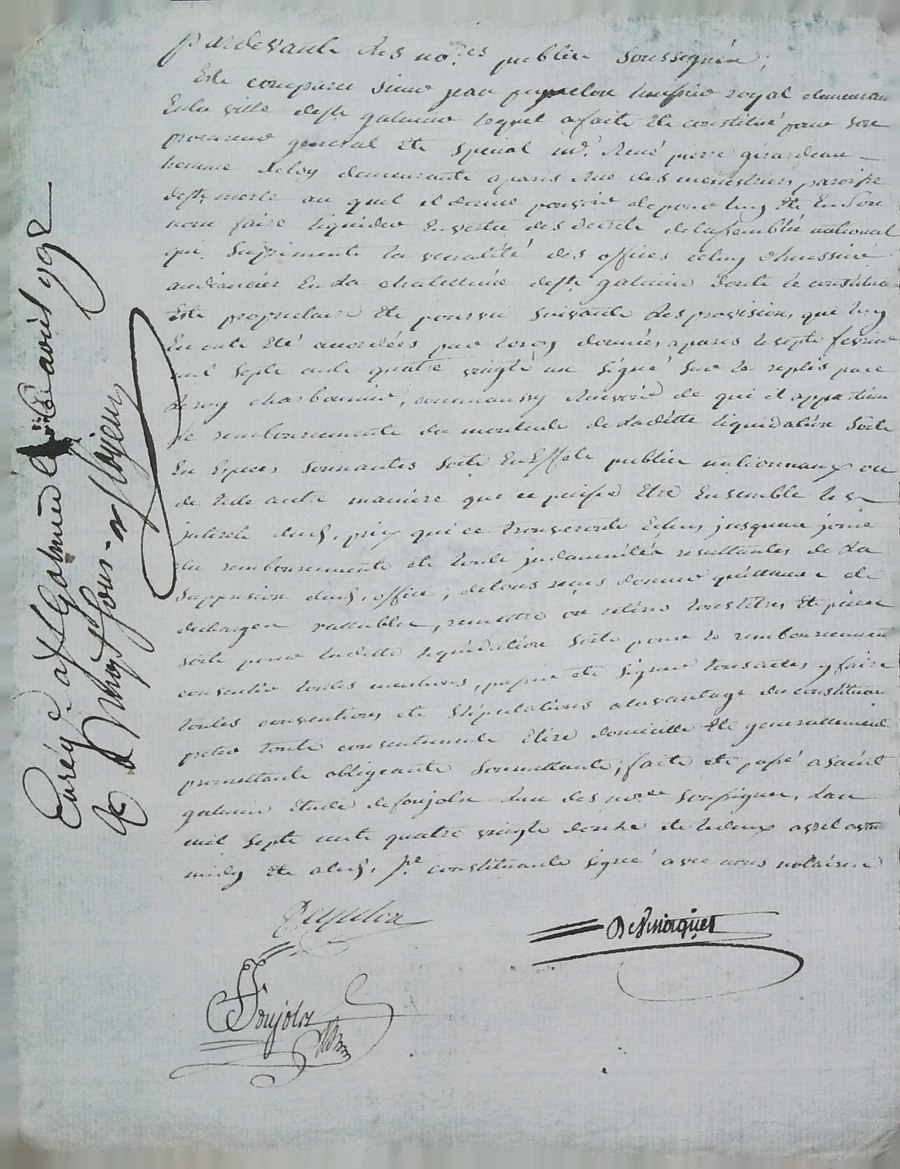 pardevant les no.res publics soussignés,
Est comparu sieur jean pupelon huissier royal demeurant
En la ville de st galmier lequel a fait et constitué pour son
procureur general et special m.r René pierre girardeau
homme de loy demeurant a paris Rue des menestriers paroisse
de st merle au quel il donne pouvoir de pour luy et En son
nom faire liquider En vertu des decrets de lassemblée national
qui Supriment la venalité des offices celuy dhuissier
audiancier En la chatellenie de st galmier dont le constituant
Est proprietaire et pourvu suivant les provisions que luy
En ont été accordées par le roy donnés a paris le sept fevrier
mil Sept cent quatre vingt un signé sur le replis par
le roy charbonnier, comme aussy recevoir de qui il appartiendra
le remboursement du montant de ladite liquidation soit
En Especes sonnantes soit En Effets publics nationnaux ou
de toute autre maniere que ce puisse Etre Ensemble les
jnterets dud. prix qui ce trouveront Echus jusquau jour
du remboursement et toute jndamnités resultantes de la
suppression dud. office; de tous reçus donner quittance et
decharger vallables, remettre ou retirer tous titres et pieces
soit pour ladite liquidation soit pour le remboursement
consentir toutes mentions, passer et signer tous actes y faire
toutes conventions et Stipulations a lavantage du constituant
preter tout consentement Elire domicille et generallement
promettant obligeant soumettant; fait et passé a saint
galmier Etude de foujols lun des no.res soussignes, lan
mil sept cent quatre vingt douze et le deux avril avant
midy et a led. s.r constituant signé avec nous notaires
Pupelon
DeVinoiquet
Foujols
Enrég.é a St Galmier le avril 1792
R